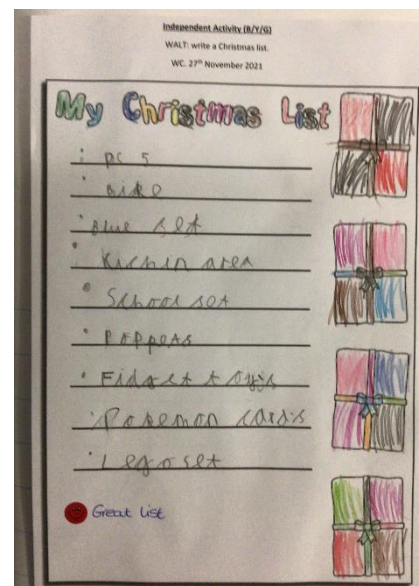 Independent Activity (B/Y/G)
WALT: write a Christmas list.
WC. 27th November 2021
My Christmas List
• PC 5
• Bike
• Blue set
• Kichin area
• School set
• Poppets
• Fidget toys
• Pokemon cards
• Lego set
Great List